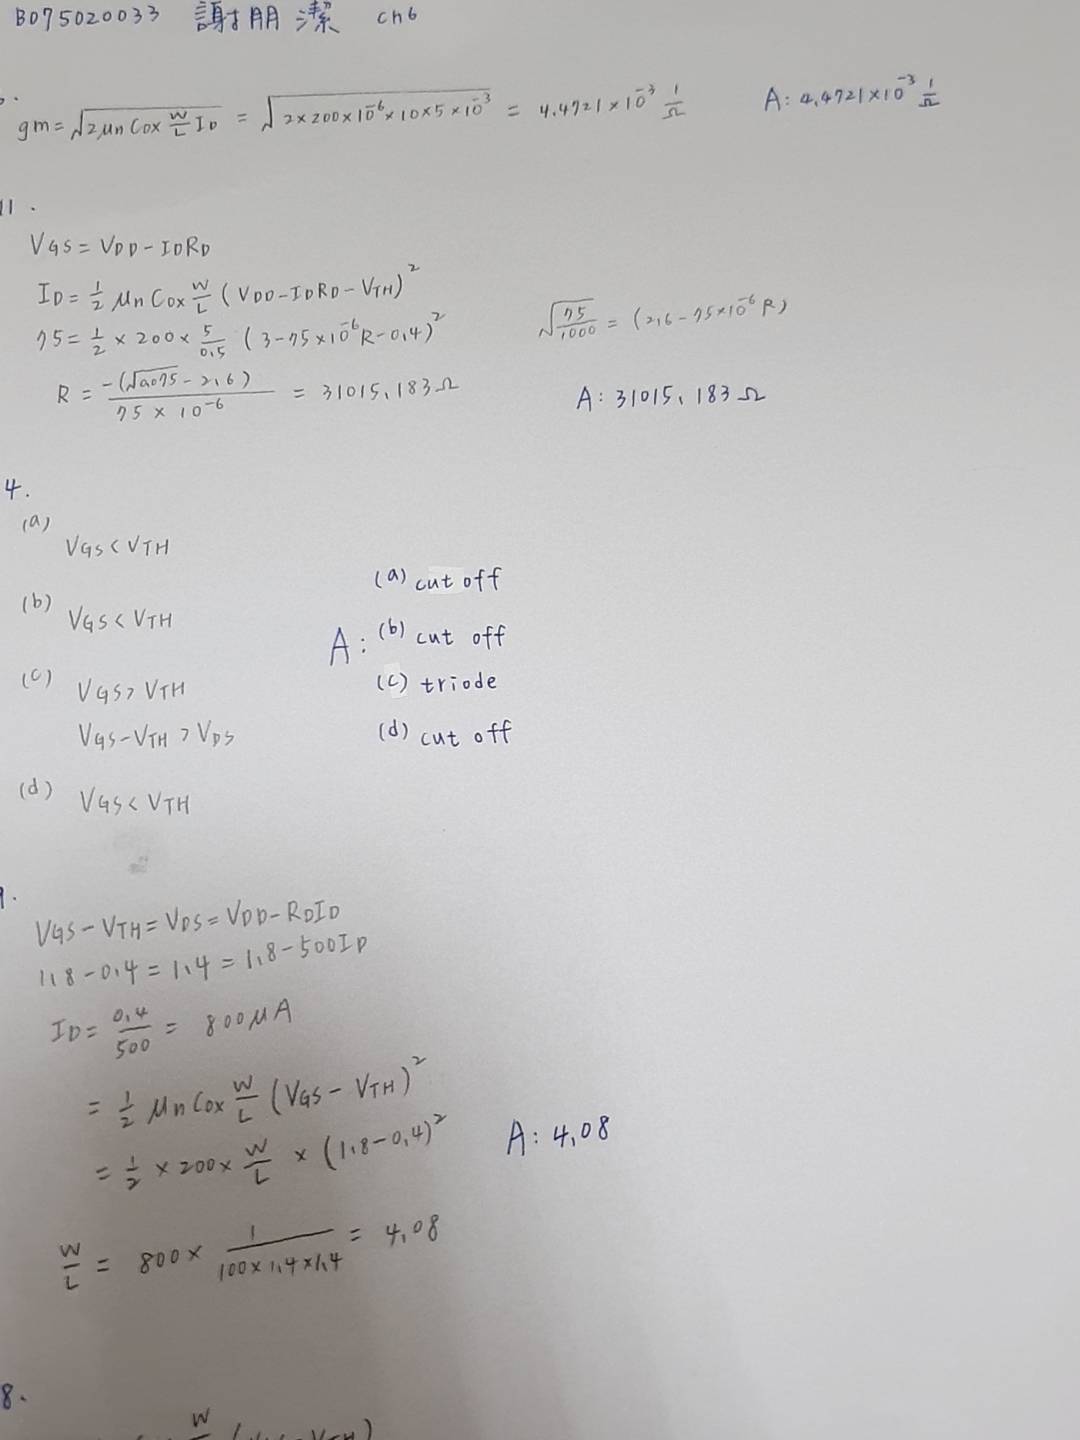 B075020033 謝朋潔 ch6
gm = √(2μnCox W/L ID) = √(2×200×10^-6×10×5×10^-3) = 4.4721×10^-3 1/Ω A: 4.4721×10^-3 1/Ω
11.
VGS = VDD - IDRD
ID = 1/2 μnCox W/L (VDD - IDRD - VTH)^2
75 = 1/2 × 200 × 5/0.5 (3 - 75×10^-6 R - 0.4)^2 √(75/1000) = (2.6 - 75×10^-6 R)
R = -(√0.075 - 2.6) / 75×10^-6 = 31015.183Ω A: 31015.183Ω
4.
(a) VGS < VTH
(b) VGS < VTH
(c) VGS > VTH
VGS - VTH > VDS
(d) VGS < VTH
A:
(a) cut off
(b) cut off
(c) triode
(d) cut off
VGS - VTH = VDS = VDD - RDID
1.8 - 0.4 = 1.4 = 1.8 - 500ID
ID = 0.4/500 = 800μA
= 1/2 μnCox W/L (VGS - VTH)^2
= 1/2 × 200 × W/L × (1.8 - 0.4)^2 A: 4.08
W/L = 800 × 1/(100×1.4×1.4) = 4.08
8.